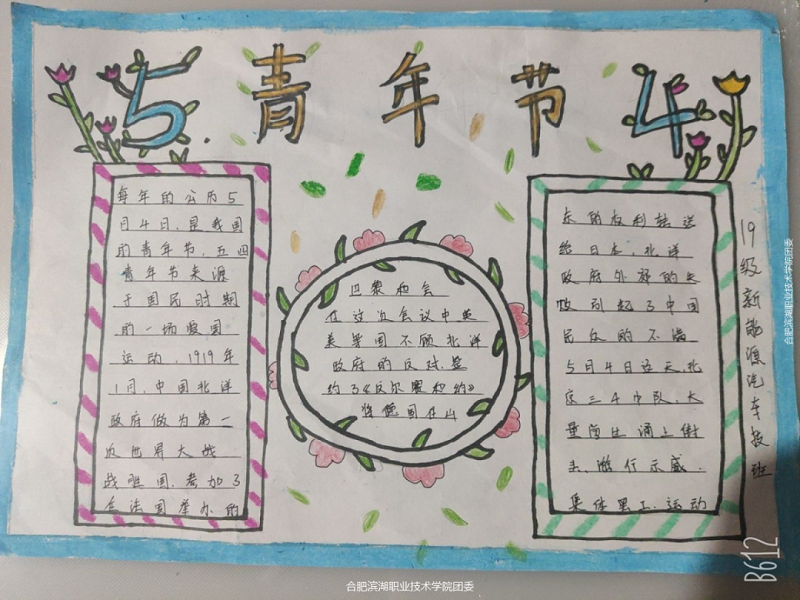 5 青年节 4
每年的公历5
月4日,是我国
的青年节,五四
青年节来源
于国民时期
的一场爱国
运动,1919年
1月,中国北洋
政府做为第一
次世界大战
战胜国,参加了
在法国举办的
巴黎和会
在这次会议中英
美等国不顾北洋
政府的反对,签
约了《凡尔赛和约》
将德国在山
东的权利转送
给日本,北洋
政府外交的失
败引起了中国
民众的不满
5月4日这天,北
京三千
学生涌上街
头,游行示威.
集体罢工,运动
19级新能源汽车技班
合肥滨湖职业技术学院团委
合肥滨湖职业技术学院团委
B612